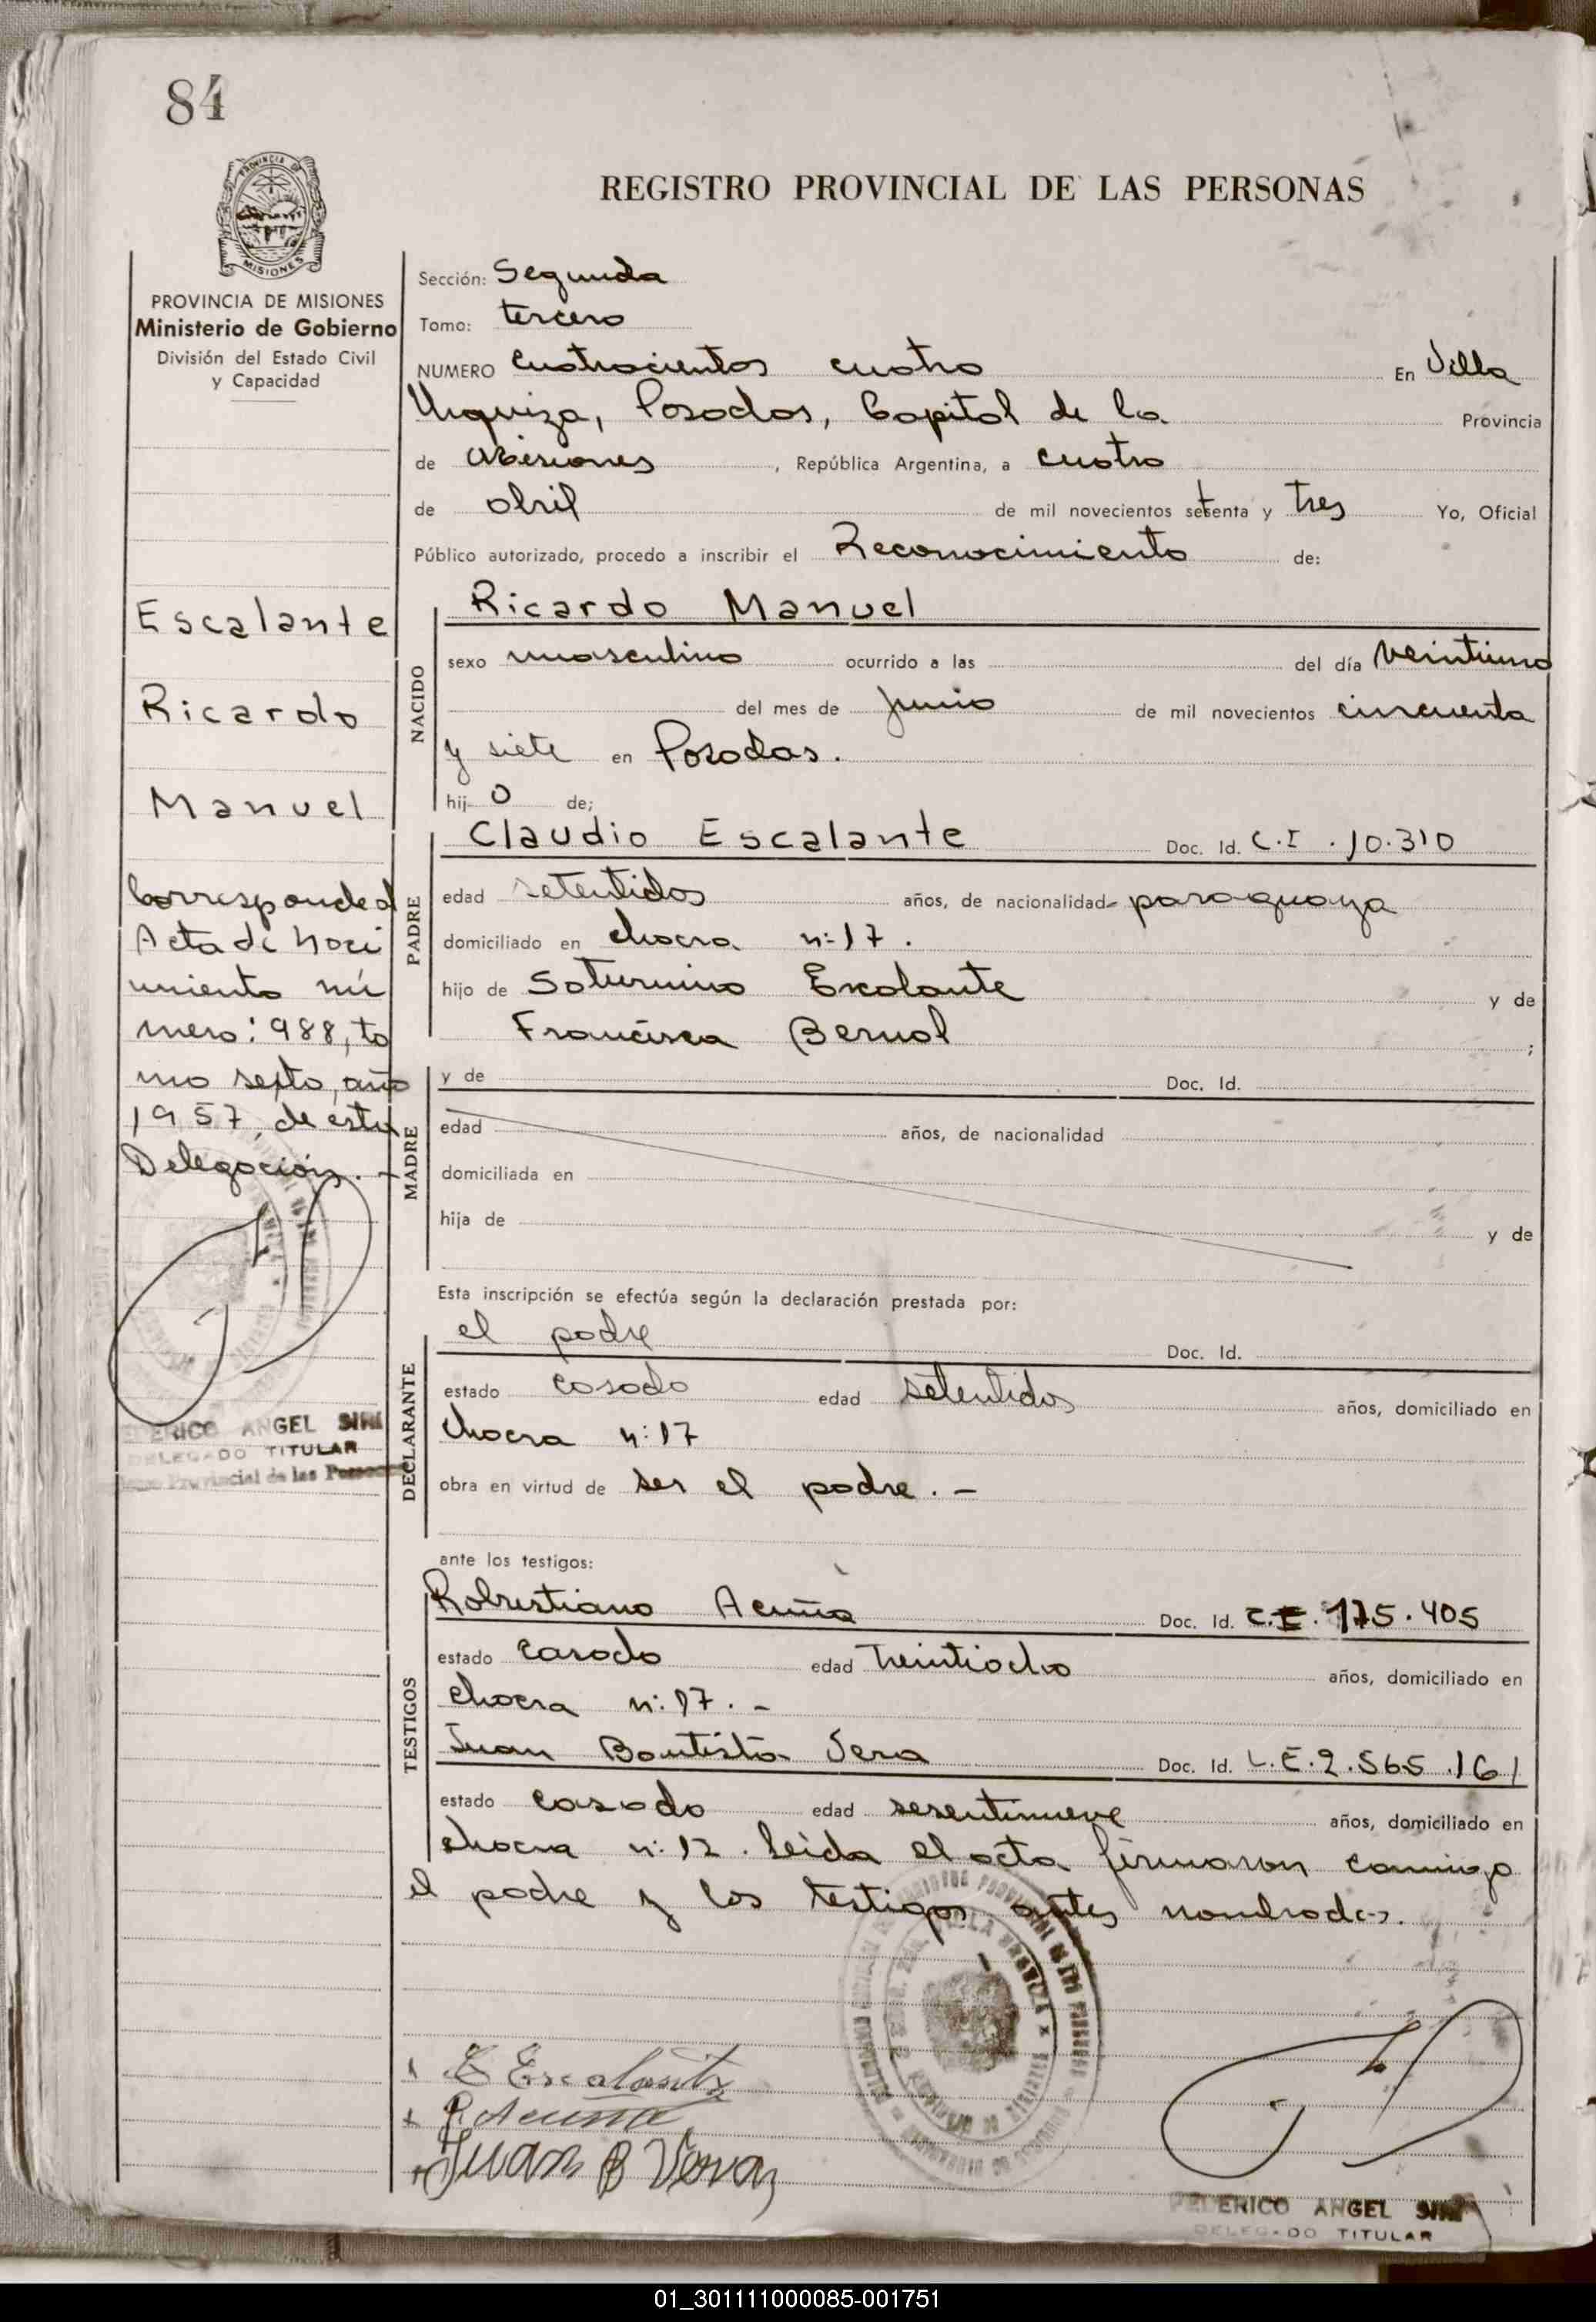 84
PROVINCIA DE
MISIONES
REGISTRO PROVINCIAL DE LAS PERSONAS
PROVINCIA DE MISIONES
Ministerio de Gobierno
División del Estado Civil
y Capacidad
Escalante
Ricardo
Manuel
Corresponde al
Acta de Naci
miento nú
mero: 988, to
mo sexto, año
1957, de esta
Delegación. -
ANGEL SINI
DELEGADO TITULAR
Provincial de las Personas
Sección: Segunda
Tomo: tercero
NUMERO cuatrocientos cuatro En Villa
Urquiza, Posadas, Capital de la Provincia
de Misiones, República Argentina, a cuatro
de abril de mil novecientos setenta y tres Yo, Oficial
Público autorizado, procedo a inscribir el Reconocimiento de:
NACIDO
Ricardo Manuel
sexo masculino ocurrido a las del día veintiuno
del mes de junio de mil novecientos cincuenta
y siete en Posadas.
hijo de;
PADRE
Claudio Escalante Doc. Id. C.I. 10.310
edad setentidos años, de nacionalidad paraguaya
domiciliado en chacra n: 17.
hijo de Saturnino Escalante y de
Francisca Bernal ;
MADRE
y de Doc. Id.
edad años, de nacionalidad
domiciliada en
hija de y de
Esta inscripción se efectúa según la declaración prestada por:
DECLARANTE
el padre Doc. Id.
estado casado edad setentidos años, domiciliado en
chacra n: 17
obra en virtud de ser el padre. -
ante los testigos:
TESTIGOS
Robustiano Acuña Doc. Id. C.I. 175.405
estado casado edad treintiocho años, domiciliado en
chacra n: 17. -
Juan Bautista Vera Doc. Id. L.E. 2.565.161
estado casado edad sesentinueve años, domiciliado en
chacra n: 12. Leida el acta firmaron conmigo
el padre y los testigos antes nombrados.
C Escalante
R Acuña
Juan B Vera
FEDERICO ANGEL SINI
DELEGADO TITULAR
01_301111000085-001751